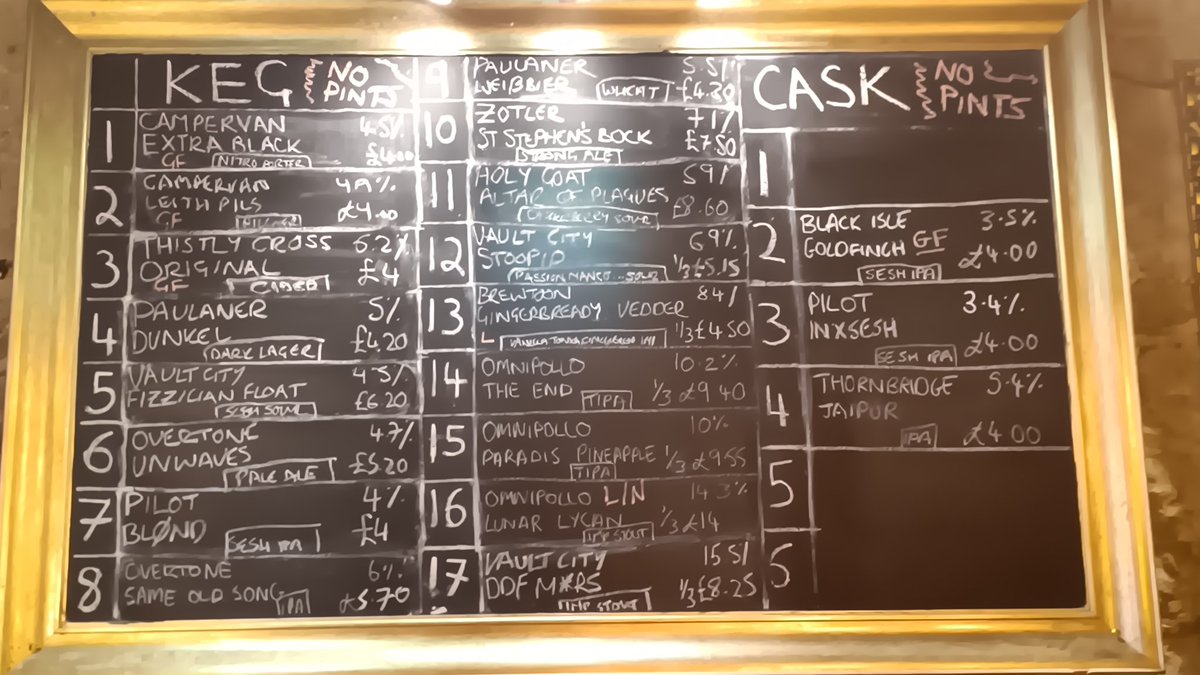 KEG NO PINTS
1 CAMPERVAN 4.5%
EXTRA BLACK £4.00
GF NITRO PORTER
2 CAMPERVAN 4.9%
LEITH PILS £4.00
GF
3 THISTLY CROSS 6.2%
ORIGINAL £4
GF CIDER
4 PAULANER 5%
DUNKEL £4.20
DARK LAGER
5 VAULT CITY 4.5%
FIZZICIAN FLOAT £6.20
SESH SOUR
6 OVERTONE 4.7%
UNWAVES £5.20
PALE ALE
7 PILOT 4%
BLØND £4
SESH IPA
8 OVERTONE 6%
SAME OLD SONG £5.70
IPA
9 PAULANER 5.5%
WEIßBIER WHEAT £4.30
10 ZOTLER 7.1%
ST STEPHEN'S BOCK £7.50
STRONG ALE
11 HOLY GOAT 5.9%
ALTAR OF PLAGUES £8.60
SOUR
12 VAULT CITY 6.9%
STOOPID 1/3 £5.15
PASSION MANGO SOUR
13 BREWTOON 8.4%
GINGERBREADY VEDDER
L VANILLA TONKA 1/3 £4.50
14 OMNIPOLLO 10.2%
THE END TIPA 1/3 £9.40
15 OMNIPOLLO 10%
PARADIS PINEAPPLE 1/3 £9.55
TIPA
16 OMNIPOLLO L/N 14.3%
LUNAR LYCAN 1/3 £14
IMP STOUT
17 VAULT CITY 15.5%
DDF M*RS 1/3 £8.25
IMP STOUT
CASK NO PINTS
1
2 BLACK ISLE 3.5%
GOLDFINCH GF £4.00
SESH IPA
3 PILOT 3.4%
INXSESH £4.00
SESH IPA
4 THORNBRIDGE 5.4%
JAIPUR
IPA £4.00
5
5